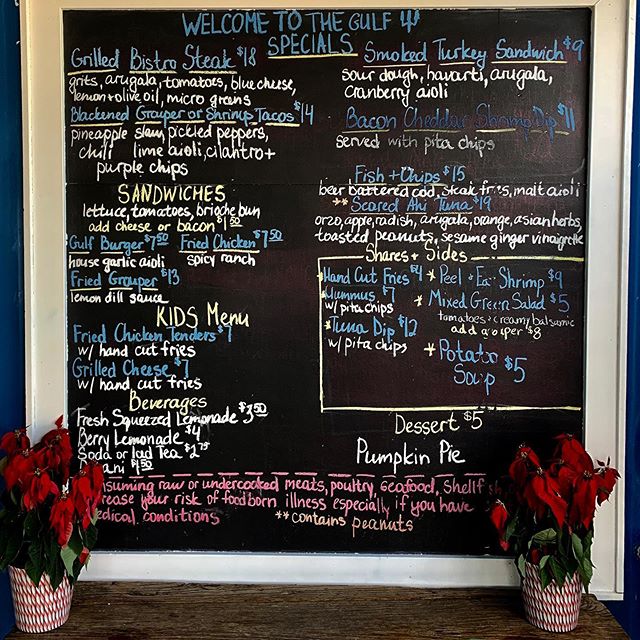 WELCOME TO THE GULF
SPECIALS
Grilled Bistro Steak $18
grits, arugala, tomatoes, blue cheese,
lemon + olive oil, micro greens
Blackened Grouper or Shrimp Tacos $14
pineapple slaw, pickled peppers,
chili lime aioli, cilantro +
purple chips
SANDWICHES
lettuce, tomatoes, brioche bun
add cheese or bacon $1.50
Gulf Burger $7.50 Fried Chicken $7.50
house garlic aioli spicy ranch
Fried Grouper $13
lemon dill sauce
KIDS Menu
Fried Chicken Tenders $7
w/ hand cut fries
Grilled Cheese $7
w/ hand cut fries
Beverages
Fresh Squeezed Lemonade $3.50
Berry Lemonade $4
Soda or Iced Tea $2.75
$1.50
Smoked Turkey Sandwich $9
sour dough, havarti, arugala,
cranberry aioli
Bacon Cheddar Shrimp Dip $11
served with pita chips
Fish + Chips $15
beer battered cod, steak fries, malt aioli
** Seared Ahi Tuna $19
orzo, apple, radish, arugala, orange, asian herbs,
toasted peanuts, sesame ginger vinaigrette
Shares + Sides
Hand Cut Fries $4 * Peel + Eat Shrimp $9
* Hummus $7 * Mixed Green Salad $5
w/ pita chips tomatoes + creamy balsamic
add grouper $8
* Tuna Dip $12
w/ pita chips
* Potato
Soup $5
Dessert $5
Pumpkin Pie
raw or undercooked meats, poultry, seafood,
your risk of foodborn illness especially if you have
conditions
**contains peanuts